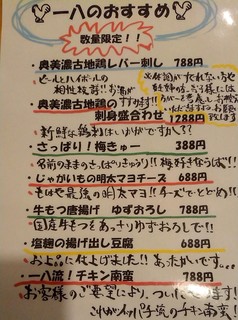 一八のおすすめ
数量限定!!
・奥美濃古地鶏レバー刺し 788円
ビールとハイボールの
相性抜群!!お酒が
すすみます!!
・奥美濃古地鶏の
刺身盛合わせ 1288円
新鮮な鶏刺はいかがですか??
・さっぱり!梅きゅー 388円
名前のままのさっぱりきゅうり!!梅好きならばー!!
・じゃがいもの明太マヨチーズ 688円
もはや最強の明太マヨ!!チーズでとどめ!!
・牛もつ唐揚げ ゆずおろし 788円
国産牛もつをあっさりゆずおろしで!!
・塩麹の揚げ出し豆腐 688円
お上品に仕上げました!!あったかいです。
・一八流!チキン南蛮 788円
お客様のご要望により、ついにできます!
これが一八流のチキン南蛮!